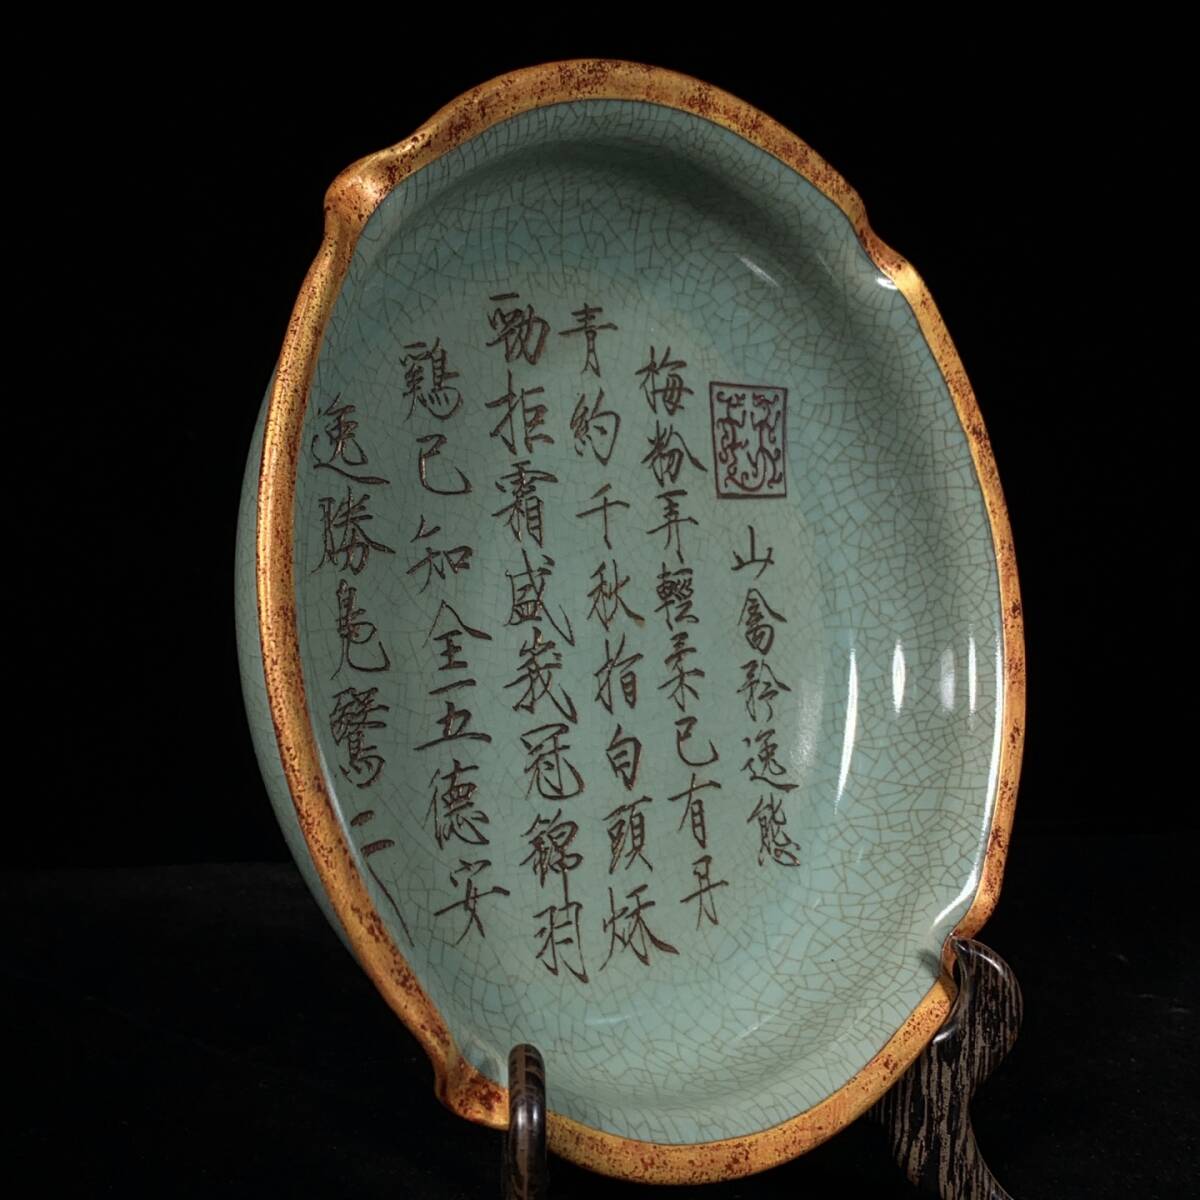 山禽矜逸態
梅粉弄輕柔已有丹
青約千秋指白頭秋
勁拒霜盛峩冠錦羽
鷄已知全五德安
逸勝鳧鷖